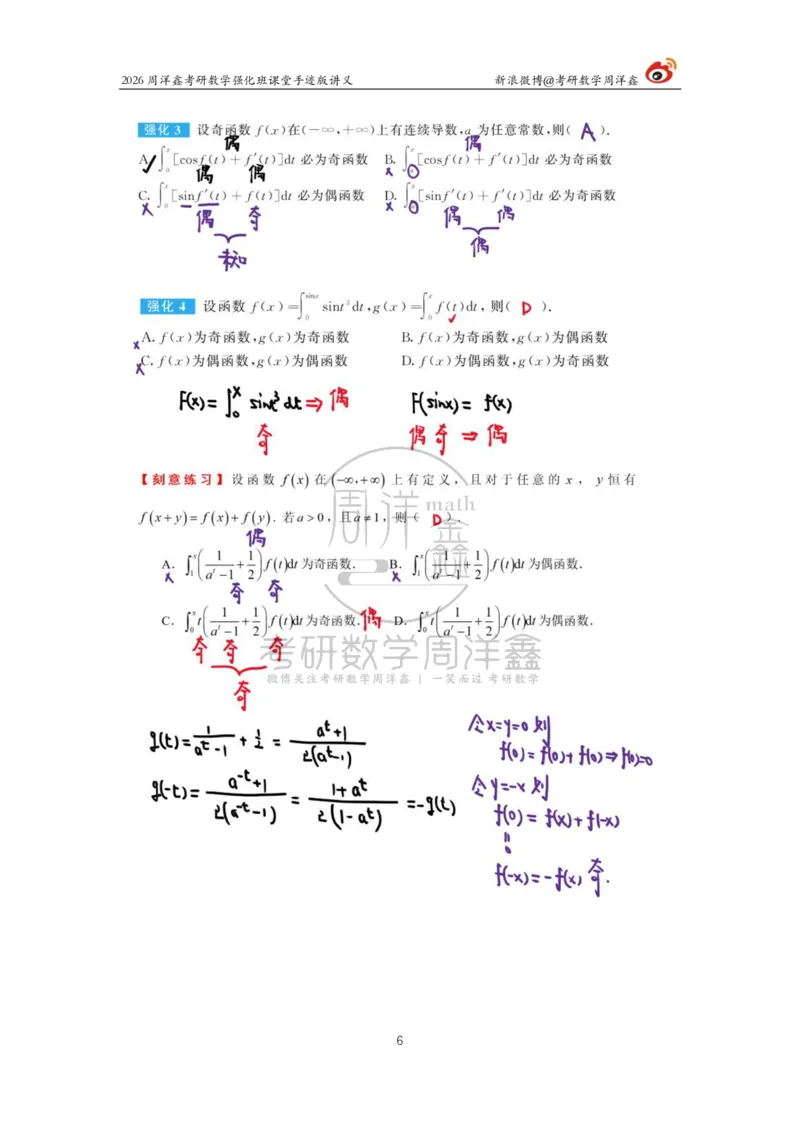 2026 周洋鑫考研数学强化班课堂手迹版讲义 新浪微博@考研数学周洋鑫
强化 3 设奇函数 f(x)在(-∞,+∞)上有连续导数,a 为任意常数,则( A ).
偶 偶
A. ∫₀ˣ[cosf(t)+f′(t)]dt 必为奇函数 B. ∫₀ˣ[cosf(t)+f′(t)]dt 必为奇函数
偶 偶 × 0
C. ∫₀ˣ[sinf′(t)+f(t)]dt 必为偶函数 D. ∫₀ˣ[sinf′(t)+f′(t)]dt 必为奇函数
× 偶 奇 × 0 偶 偶
未知 偶
强化 4 设函数 f(x)=∫₀ˢⁱⁿˣ sint³dt,g(x)=∫₀ˣ f(t)dt,则( D ).
A. f(x)为奇函数,g(x)为奇函数 B. f(x)为奇函数,g(x)为偶函数
C. f(x)为偶函数,g(x)为偶函数 D. f(x)为偶函数,g(x)为奇函数
F(x)=∫₀ˣ sint³dt⇒偶 F(sinx)=f(x)
奇 偶奇⇒偶
【刻意练习】设函数 f(x) 在 (-∞,+∞) 上有定义，且对于任意的 x ， y 恒有
f(x+y)=f(x)+f(y). 若a>0，且a≠1，则( D ).
偶
A. ∫₁ˣ(1/(aᵗ-1)+1/2)f(t)dt为奇函数. B. ∫₁ˣ(1/(aᵗ-1)+1/2)f(t)dt为偶函数.
× 奇 奇 ×
C. ∫₀ˣt(1/(aᵗ-1)+1/2)f(t)dt为奇函数. 偶 D. ∫₀ˣt(1/(aᵗ-1)+1/2)f(t)dt为偶函数.
奇 奇 奇
奇
周洋鑫 math
考研数学周洋鑫
微博关注考研数学周洋鑫 | 一笑而过 考研数学
g(t)=1/(aᵗ-1)+1/2=(aᵗ+1)/(2(aᵗ-1))
g(-t)=(a⁻ᵗ+1)/(2(a⁻ᵗ-1))=(1+aᵗ)/(2(1-aᵗ))=-g(t)
令x=y=0则
f(0)=f(0)+f(0)⇒f(0)=0
令y=-x则
f(0)=f(x)+f(-x)
॥
0
f(-x)=-f(x) 奇.
6